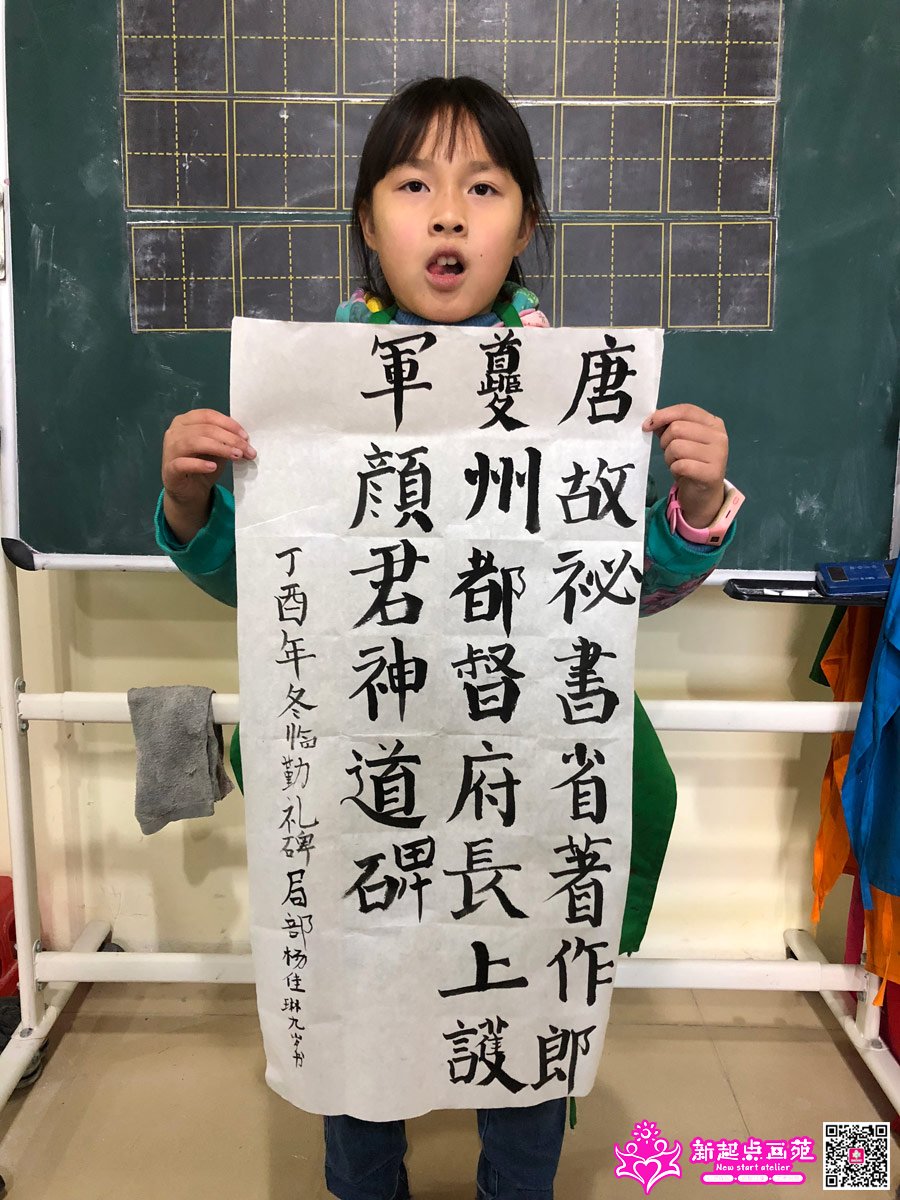 唐故祕書省著作郎
夔州都督府長上護
軍顔君神道碑
丁酉年冬临勤礼碑局部杨佳琳九岁书
新起点画苑
New start atelier